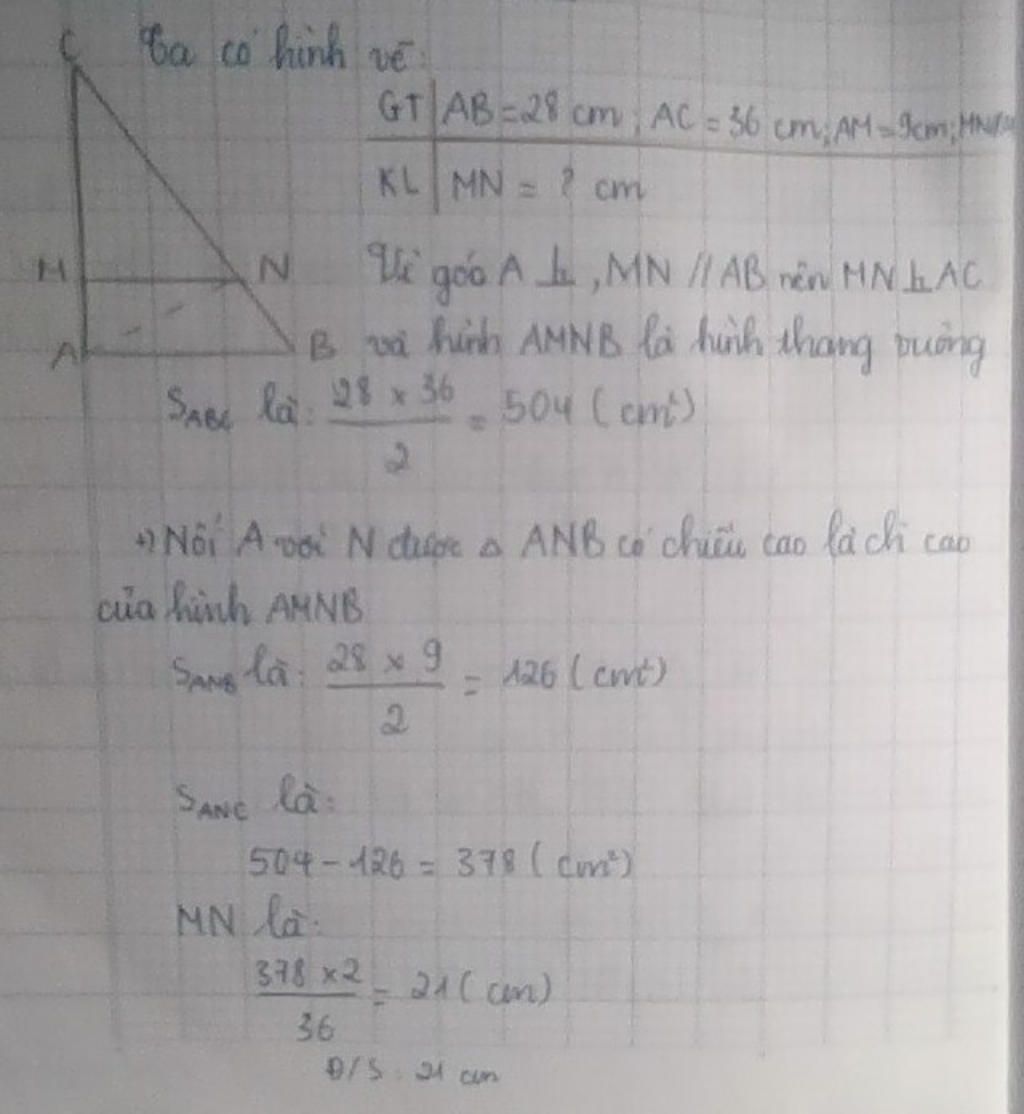 Ta có hình vẽ:
C
GT AB = 28 cm; AC = 36 cm; AM = 9cm; MN//
KL MN = ? cm
M N
Vì góc A ⊥, MN // AB nên MN ⊥ AC
A B và hình AMNB là hình thang vuông
S_ABC là: (28 × 36)/2 = 504 (cm²)
+) Nối A với N được △ ANB có chiều cao là ch cao
của hình AMNB
S_ANB là: (28 × 9)/2 = 126 (cm²)
S_ANC là:
504 - 126 = 378 (cm²)
MN là:
(378 × 2)/36 = 21 (cm)
Đ/S: 21 cm